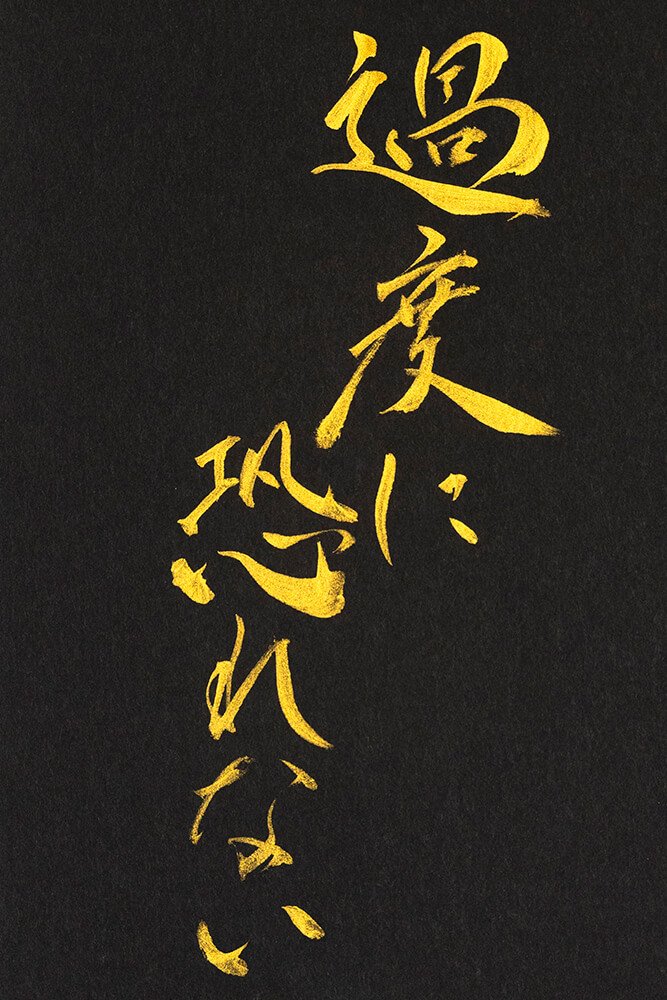 過度に
恐れない